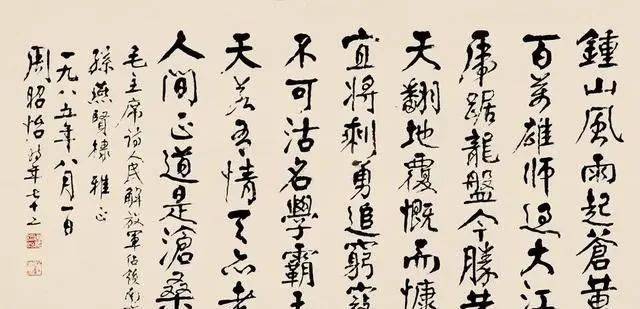 鍾山風雨起蒼黃
百萬雄師過大江
虎踞龍盤今勝昔
天翻地覆慨而慷
宜將剩勇追窮寇
不可沽名學霸王
天若有情天亦老
人間正道是滄桑
毛主席詩人民解放軍佔領南
孫燕賢棣雅正
一九八五年八月一日
周昭怡時年七十二